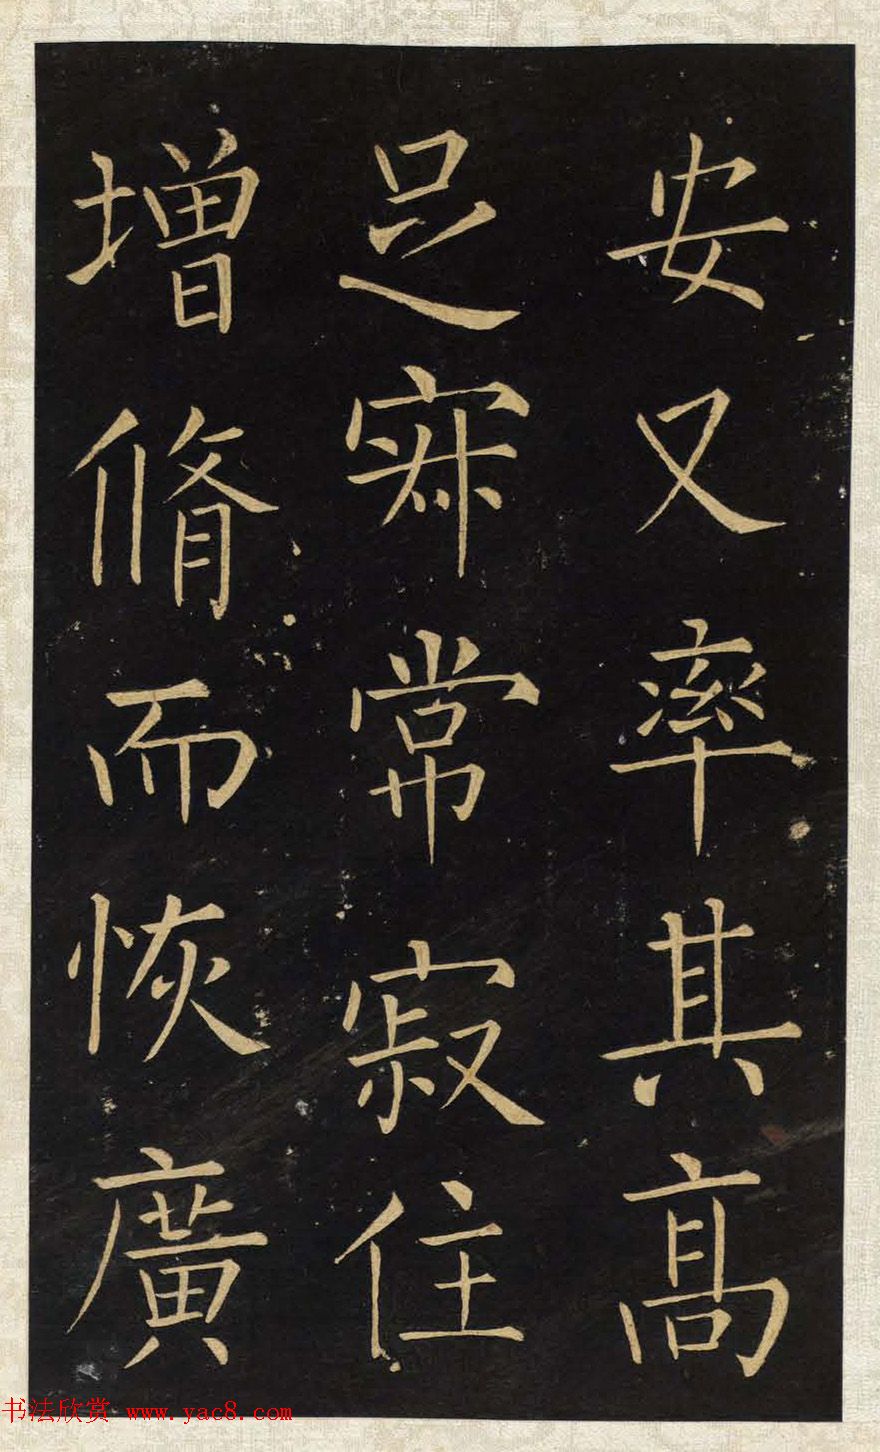 安又率其髙
足常寂住
增脩而恢廣
书法欣赏 www.yac8.com